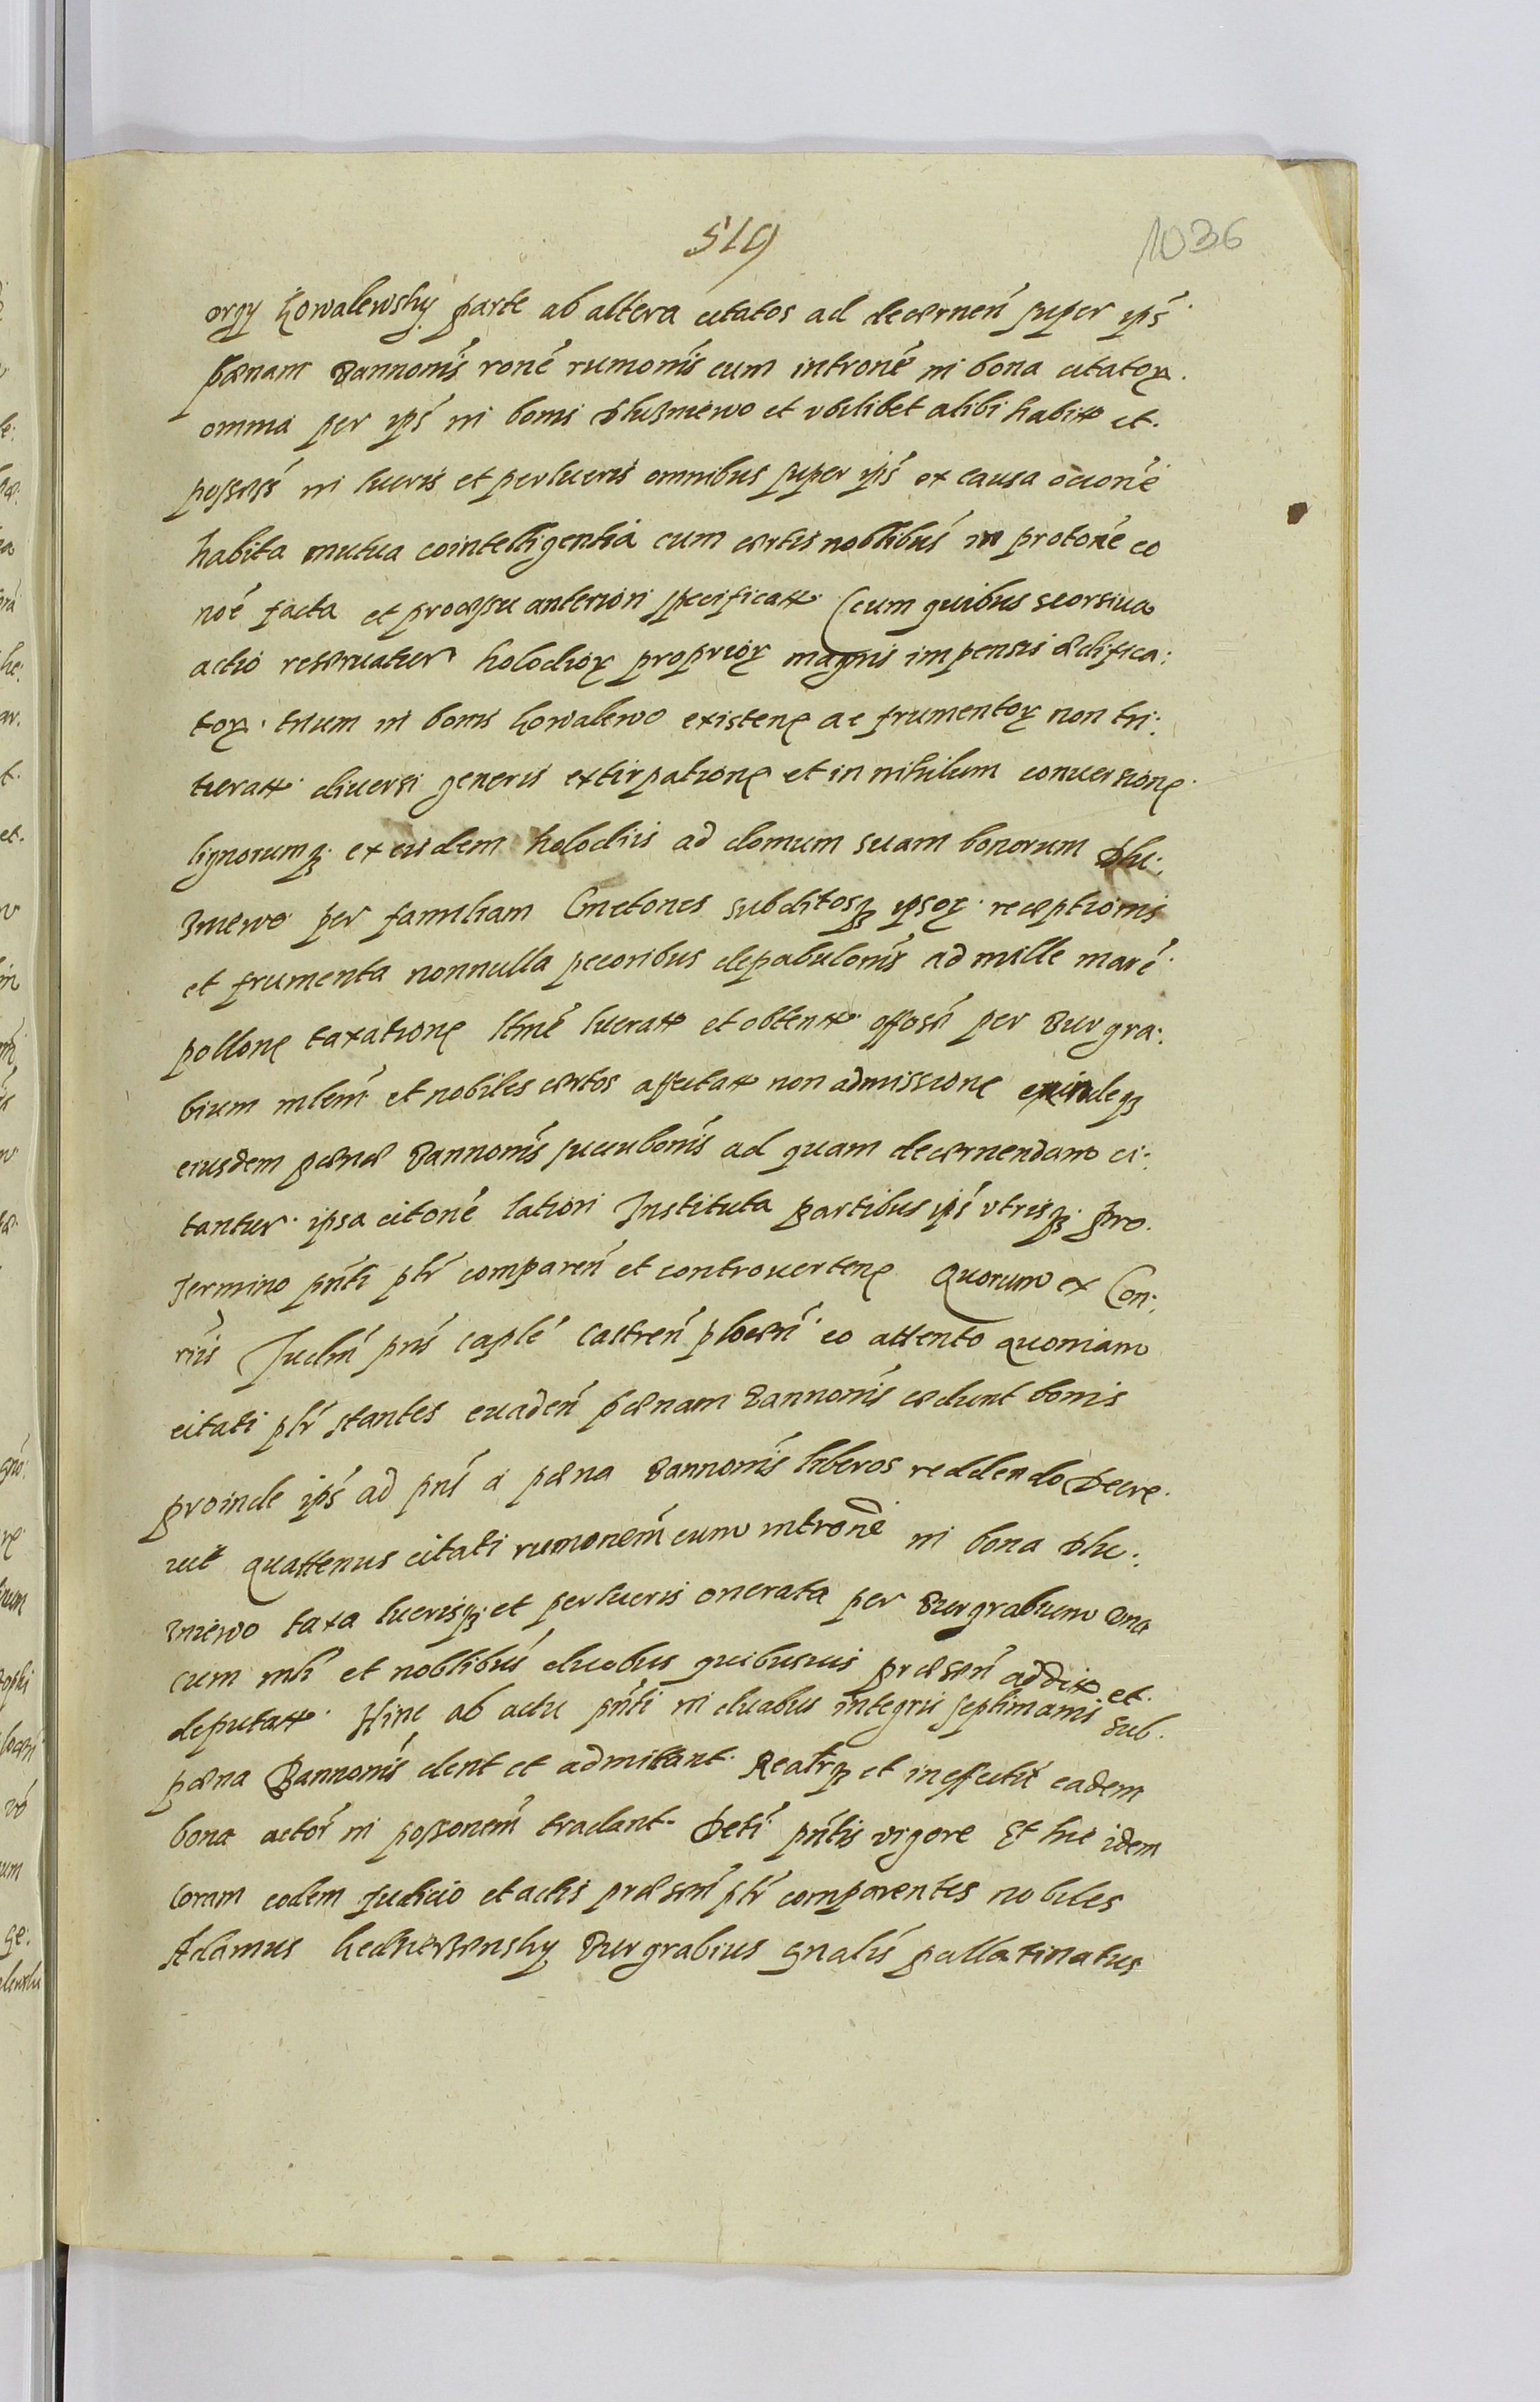 519
1036
orgy Kowalewsky parte ab altera citatos ad decernen super ips
pœnam Bannonis rone rumonis cum introne in bona citator
omnia per ips in bonis Dluzniewo et vbilibet alibi habit et
possess in lucris et perlucris omnibus super ips ex causa occione
habita mutua cointelligentia cum certis noblibus in protone eo
noe facta et processu anteriori specificat (cum quibus seorsiua
actio reseruatur holodior proprior magnis impensis ædifica:
tor trium in bonis Kowalewo existen ac frumentor non tri:
turat diuersi generis extirpatione et in nihilum conuersione
lignorumq ex eisdem holodiis ad domum suam bonorum Dlu:
zniewo per familiam Cmetones subditosq ipsor receptionis
et frumenta nonnulla pecoribus depabulonis ad mille mare
pollone taxatione ltme lucrat et obtent opposn per Burgra:
bium mlem et nobiles certos affectat non admissione exindeq
eiusdem pœnæ Bannonis succubonis ad quam decernendam ci:
tantur ipsa citone latiori Instituta partibus ips vtrisq pro
Termino pnti ptr comparen et controuerten Quorum ex Con:
rius Judm pns caple castren plocen eo attento quoniam
citati ptr stantes euaden pœnam Bannonis cedunt bonis
proinde ips ad pns a pœna Bannonis liberos reddendo Decre
uit quattenus citati rumonem cum introne in bona Dlu:
zniewo taxa lucrisq et perlucris onerata per Burgrabium vna
cum mli et noblibus duobus quibusuis præsen addit et
deputat Hinc ab actu pnti in duabus integris septimanis sub
pœna Bannonis dent et admittant Realrq et in effectu eadem
bona actori in possonem tradant Deti pntis vigore Et hic idem
coram eodem Judicio et actis præsen ptr comparentes nobiles
Adamus Burgrabius gnalis pallatinatus